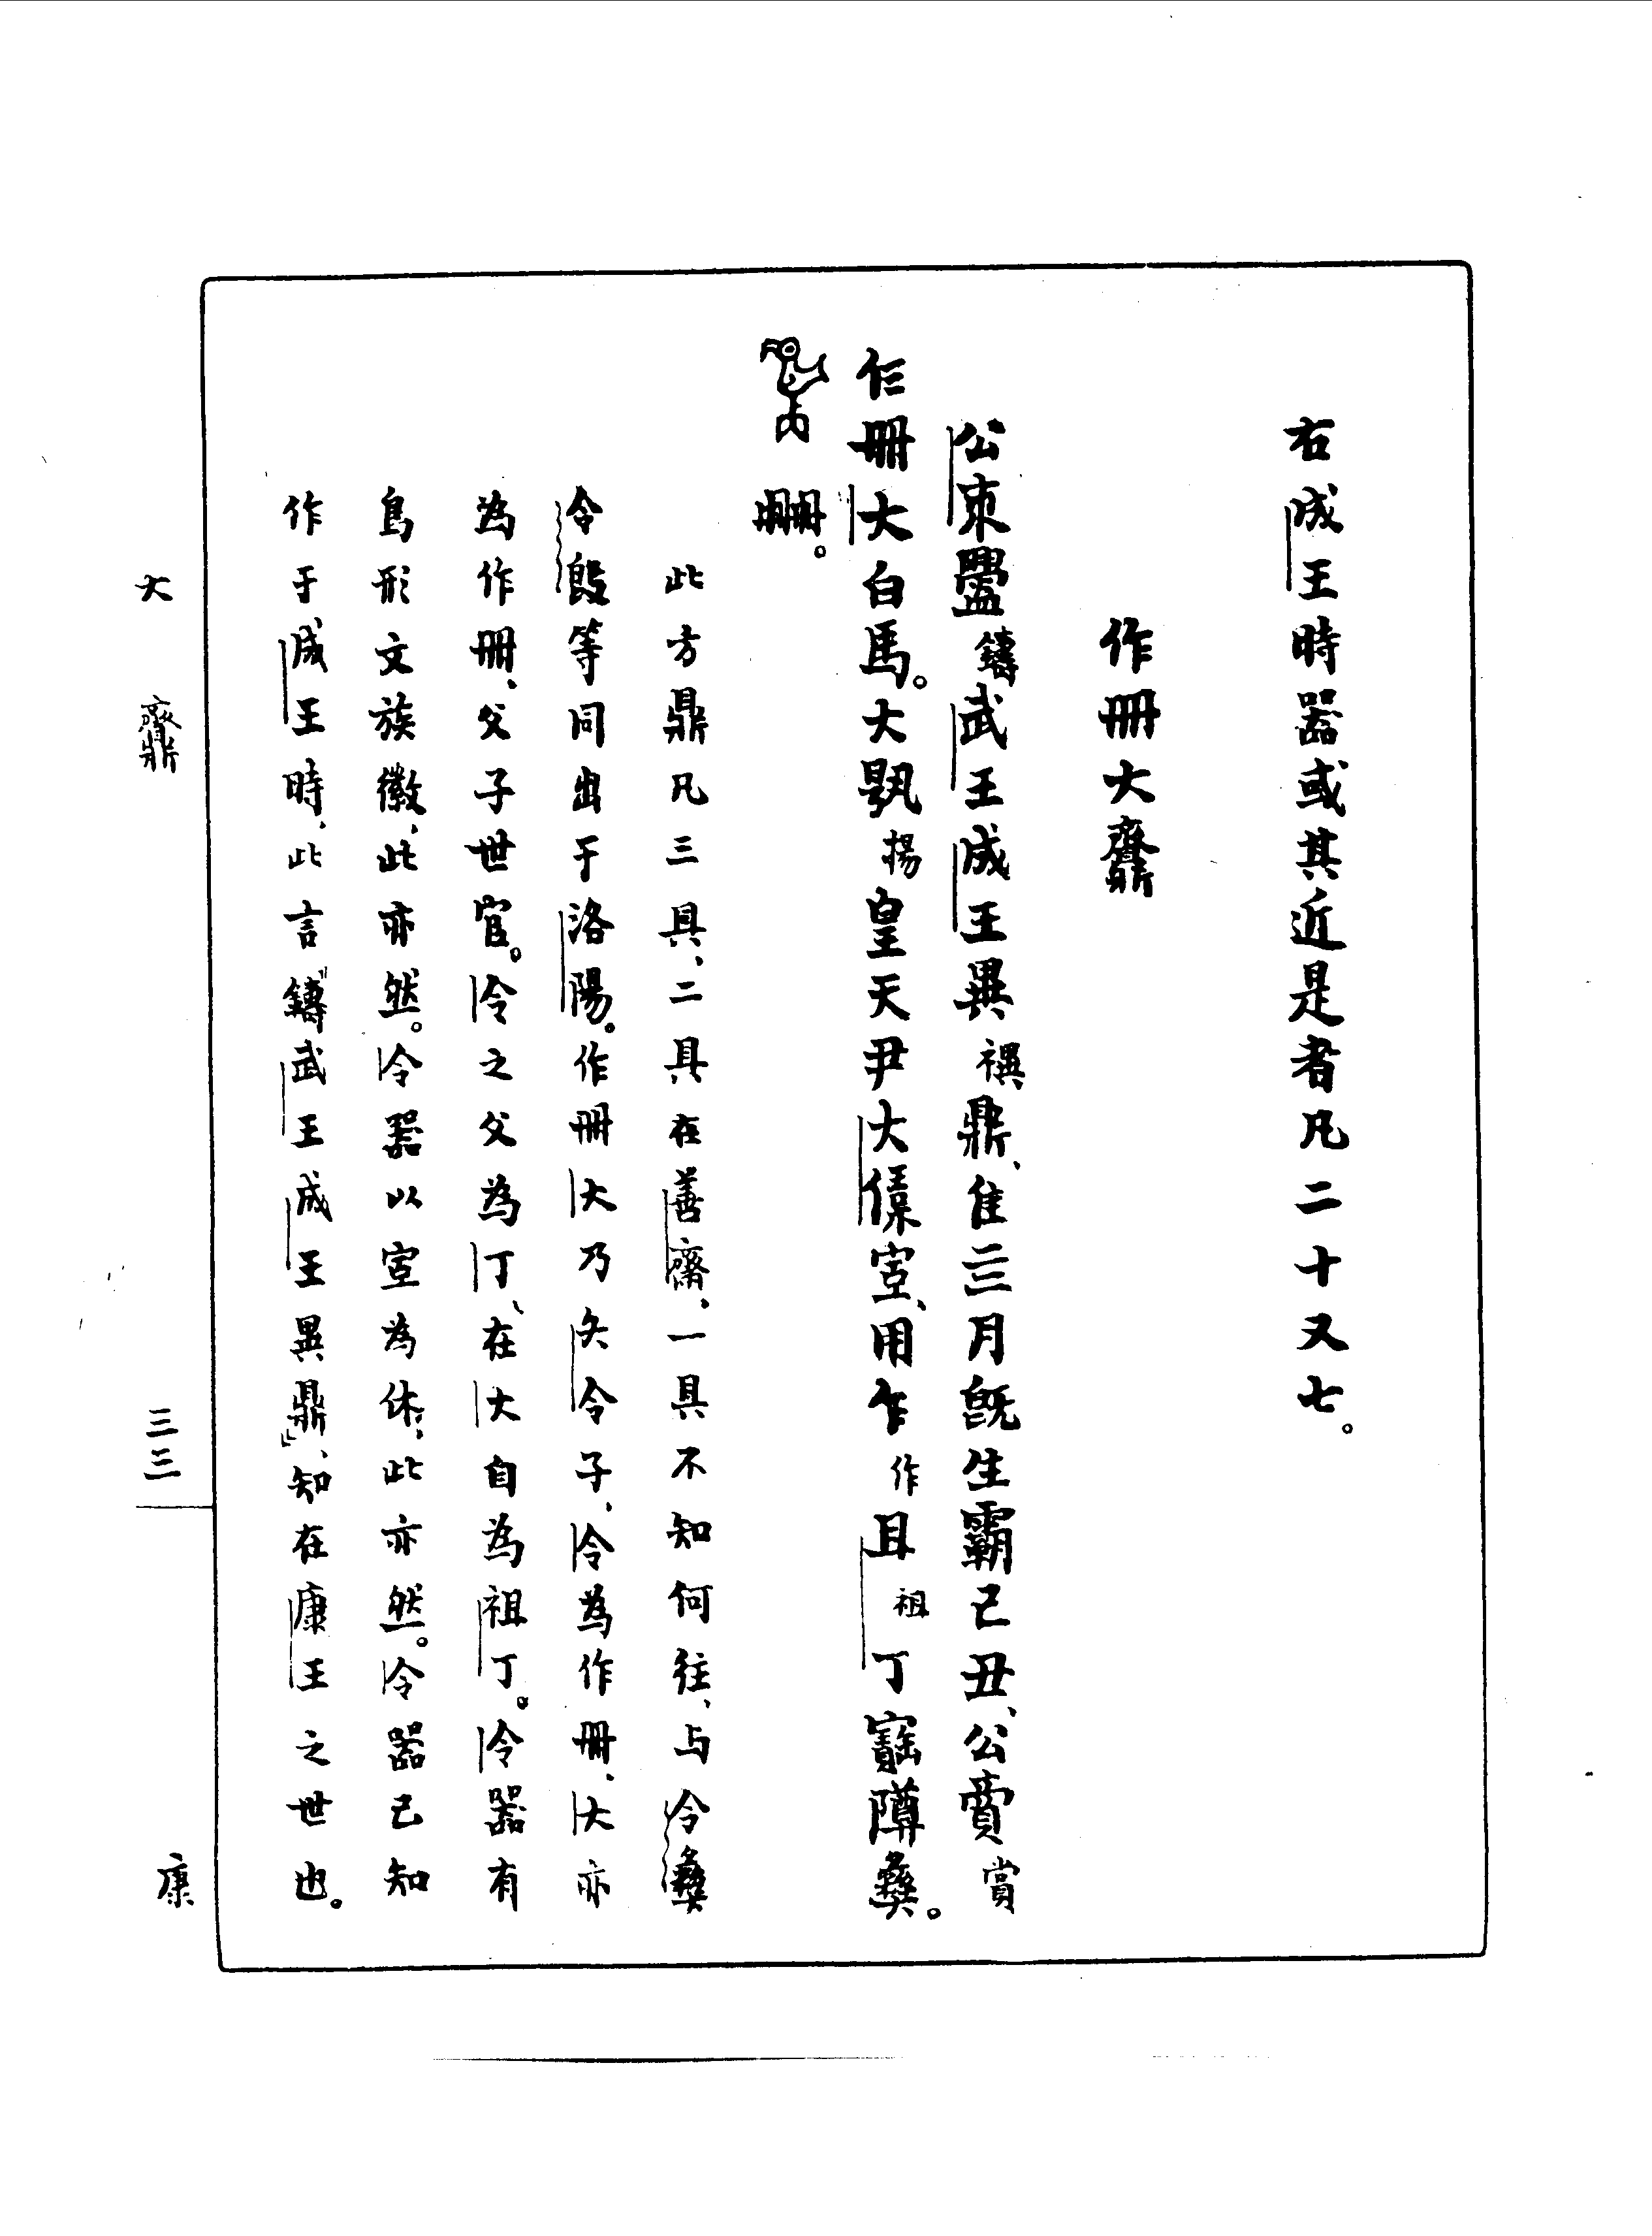 右成王時器或其近是者凡二十又七。
作冊大齋
公朿鑄武王成王異禩鼎、隹三月既生霸己丑、公賞賞
乍冊大白馬。大揚皇天尹大𠍙室、用乍作且祖丁寶䵼彝。
冊冊。
此方鼎凡三具、二具在善齋、一具不知何往、与令彝
令𣪘等同出于洛陽。作冊大乃夨令子、令為作冊、大亦
為作冊、父子世官。令之父為丁、在大自為祖丁。令器有
鳥形文族徽、此亦然。令器以室為休、此亦然。令器已知
作于成王時、此言「鑄武王成王異鼎」、知在康王之世也。
大 鼎
三三
康